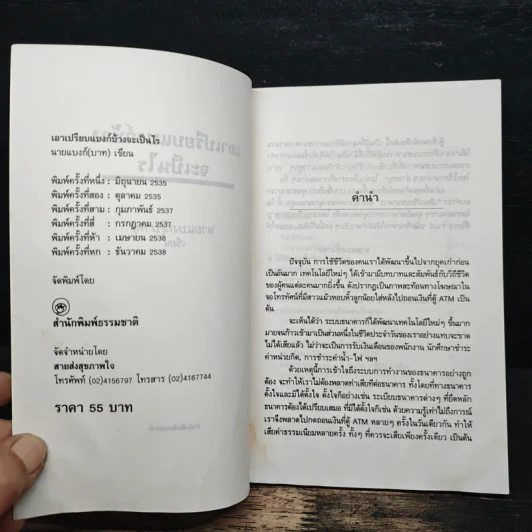 เอาเปรียบแบงก์บ้างจะเป็นไร
นายแบงก์(บาท) เขียน
พิมพ์ครั้งที่หนึ่ง : มิถุนายน 2535
พิมพ์ครั้งที่สอง : ตุลาคม 2535
พิมพ์ครั้งที่สาม : กุมภาพันธ์ 2537
พิมพ์ครั้งที่สี่ : กรกฎาคม 2537
พิมพ์ครั้งที่ห้า : เมษายน 2538
พิมพ์ครั้งที่หก : ธันวาคม 2538
จัดพิมพ์โดย
สำนักพิมพ์ธรรมชาติ
จัดจำหน่ายโดย
สายส่งสุขภาพใจ
โทรศัพท์ (02)4156797 โทรสาร (02)4167744
ราคา 55 บาท
คำนำ
ปัจจุบัน การใช้ชีวิตของคนเราได้พัฒนาขึ้นไปจากยุคเก่าก่อน
เป็นอันมาก เทคโนโลยีใหม่ๆ ได้เข้ามามีบทบาทและสัมพันธ์กับวิถีชีวิต
ของผู้คนแต่ละคนมากยิ่งขึ้น ดังปรากฏเป็นภาพสะท้อนทางโฆษณาใน
จอโทรทัศน์ที่มีสาวแม้วหอบหิ้วลูกน้อยใส่หลังไปถอนเงินที่ตู้ ATM เป็น
ต้น
จะเห็นได้ว่า ระบบธนาคารก็ได้พัฒนาเทคโนโลยีใหม่ๆ ขึ้นมาก
มายจนก้าวเข้ามาเป็นส่วนหนึ่งในชีวิตประจำวันของเราอย่างแทบจะขาด
ไม่ได้เสียแล้ว ไม่ว่าจะเป็นการรับเงินเดือนของพนักงาน นักศึกษาชำระ
ค่าหน่วยกิต, การชำระค่าน้ำ-ไฟ ฯลฯ
ด้วยเหตุนี้การเข้าใจถึงระบบการทำงานของธนาคารอย่างถูก
ต้อง จะทำให้เราไม่ต้องพลาดท่าเสียทีต่อธนาคาร ทั้งโดยที่ทางธนาคาร
ตั้งใจและมิได้ตั้งใจ ตั้งใจก็อย่างเช่น ระเบียบธนาคารต่างๆ ที่ยึดหลัก
ธนาคารต้องได้เปรียบเสมอ ที่มิได้ตั้งใจก็เช่น ด้วยความรู้เท่าไม่ถึงการณ์
เราจึงพลาดไปกดถอนเงินที่ตู้ ATM หลายๆ ครั้งในวันเดียวกัน ทำให้
เสียค่าธรรมเนียมหลายครั้ง ทั้งๆ ที่ควรจะเสียเพียงครั้งเดียว เป็นต้น